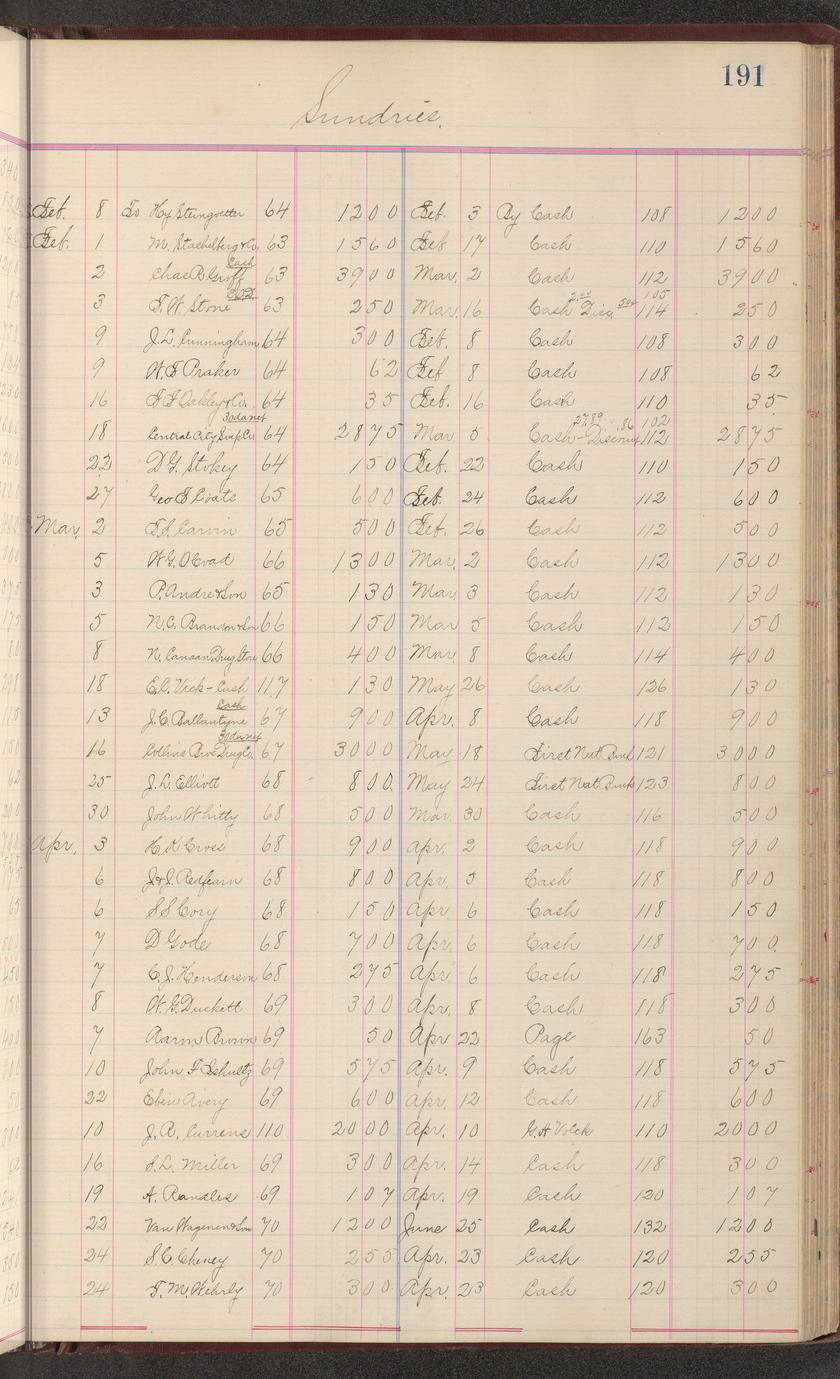 191
Sundries.
Feb. 8 To Hoy Steingoetter 64 1200 Feb. 3 By Cash 108 1200
Feb. 1 M. Stachelberg & Co. 63 1560 Feb 17 Cash 110 1560
Cash
2 Chas B Groff 63 3900 Mar. 2 Cash 112 3900
3 T.W. Stone 63 250 Mar. 16 Cash 2.00 Disc 114 105 250
9 J.L. Cunningham 64 300 Feb. 8 Cash 108 300
9 W.F. Praker 64 62 Feb 8 Cash 108 62
16 Oakley & Co. 64 35 Feb. 16 Cash 110 35
30 da net 27.89 .86 102
18 Central City Soap Co 64 2875 Mar. 5 Cash - Discount 112 2875
22 D.G. Stokey 64 150 Feb. 22 Cash 110 150
27 Geo S Coats 65 600 Feb. 24 Cash 112 600
Mar. 2 Carvin 65 500 Feb. 26 Cash 112 500
5 W.G. 66 1300 Mar. 2 Cash 112 1300
3 P. Andre & Son 65 130 Mar. 3 Cash 112 130
5 N.C. Branson & Son 66 150 Mar 5 Cash 112 150
8 N. Canaan Drug Store 66 400 Mar. 8 Cash 114 400
18 E.C. Vick - Cash 117 130 May 26 Cash 126 130
Cash
13 J.C. Ballantyne 67 900 Apr. 8 Cash 118 900
30 da net
16 Collins Bros Drug Co. 67 3000 May 18 First Nat. Bank 121 3000
25 J.L. Elliott 68 800 May 24 First Nat Bank 123 800
30 John Whitty 68 500 Mar. 30 Cash 116 500
Apr. 3 H.K Cross 68 900 Apr. 2 Cash 118 900
6 J & J. Redfearn 68 800 Apr. 5 Cash 118 800
6 S S Cory 68 150 Apr 6 Cash 118 150
7 D Gode 68 700 Apr. 6 Cash 118 700
7 C.J. Henderson 68 275 Apr. 6 Cash 118 275
8 W.G. Duckett 69 300 Apr. 8 Cash 118 300
7 Aaron Brown 69 50 Apr 22 Page 163 50
10 John F Schultz 69 575 Apr. 9 Cash 118 575
22 Eben Avery 69 600 Apr. 12 Cash 118 600
10 J.R. Currens 110 2000 Apr. 10 G.A Volck 110 2000
16 S.L. Miller 69 300 Apr. 14 Cash 118 300
19 A. Randles 69 107 Apr. 19 Cash 120 107
22 Van Wagenen & Son 70 1200 June 25 Cash 132 1200
24 S.C. Cheney 70 255 Apr. 23 Cash 120 255
24 T.M. Wehrly 70 300 Apr. 23 Cash 120 300